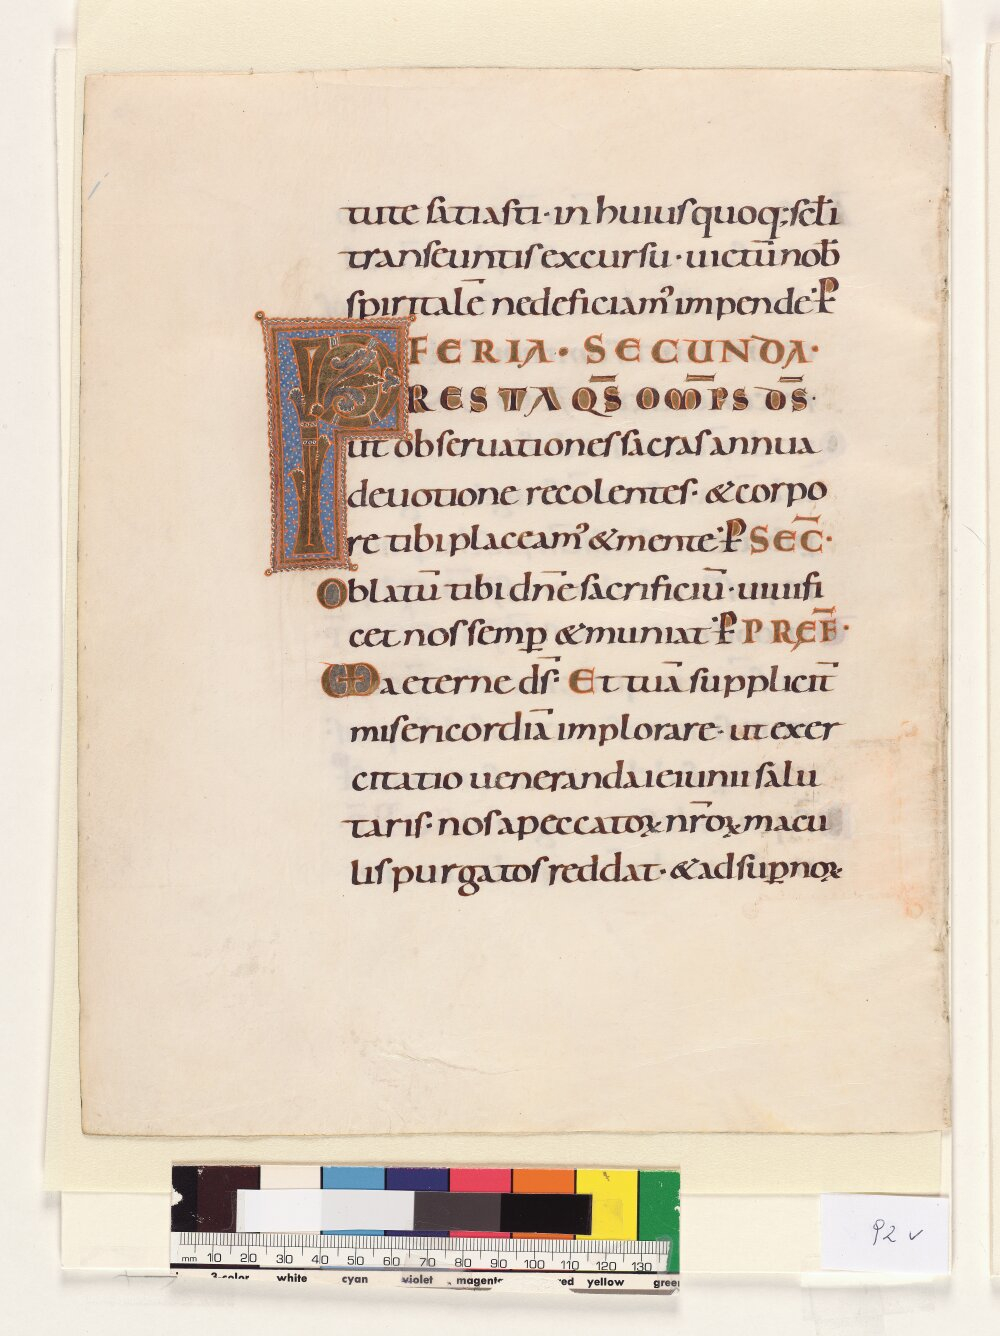 tute satiasti · in huius quoq; sẽli
transeuntis excursu · uictū nob̄
spiritalē ne deficiam᾽ impende · P̄
FERIA · SECUNDA ·
PRESTA Q̄S OM̄PS D̄S ·
ut obseruationes sacras annua
deuotione recolentes · & corpo
re tibi placeam᾽ & mente · P̄ SEC̄ ·
Oblatū tibi dn̄e sacrificiū · uiuifi
cet nos semꝑ & muniat · P̄ PRĘF̄ ·
VD aeterne ds̄ · Et tuā supplicit̄
misericordiā implorare · ut exer
citatio ueneranda ieiunii salu
taris · nos a peccatoꝝ nr̄oꝝ macu
lis purgatos reddat · & ad suꝑnoꝝ
92 v
mm 10 20 30 40 50 60 70 80 90 100 110 120 130
3-color white cyan violet magenta red yellow green